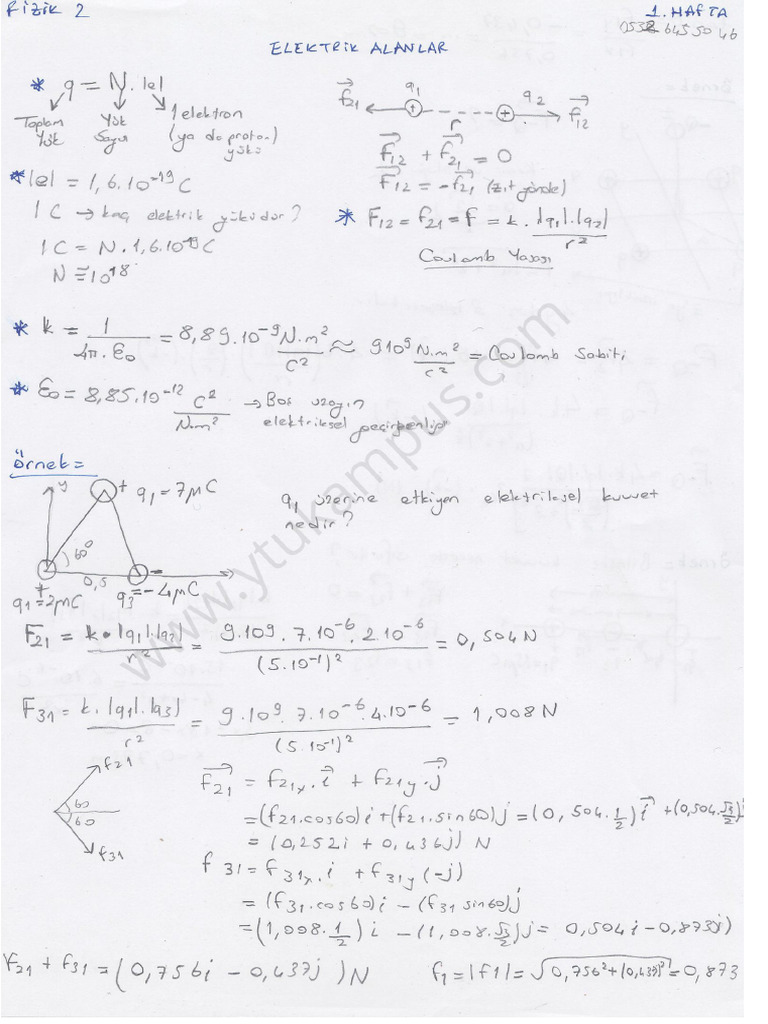 FİZİK 2
1. HAFTA
0532 645 50 46
ELEKTRİK ALANLAR
* q = N. |e|
Toplam Yük
Yük Sayısı
1 elektron (ya da proton) yükü
f21 q1 r q2 f12
f12 + f21 = 0
f12 = -f21 (zıt yönde)
* |e| = 1,6.10^-19 C
1 C → kaç elektrik yüküdür?
1 C = N. 1,6.10^-19 C
N ≅ 10^18
* F12 = f21 = f = k . |q1|.|q2| / r^2
Coulomb Yasası
* k = 1 / 4π.ε0 = 8,89.10^-9 N.m^2 / C^2 ≈ 9 10^9 N.m^2 / C^2 = Coulomb Sabiti
* ε0 = 8,85.10^-12 C^2 / N.m^2 → Boş uzayın elektriksel geçirgenliği
Örnek =
y + q1 = 7µC
60°
0,5
+ q1 = 2µC
- q3 = -4µC
q1 üzerine etkiyen elektriksel kuvvet nedir?
F21 = k.|q1|.|q2| / r^2 = 9.109. 7.10^-6. 2 10^-6 / (5.10^-1)^2 = 0,504 N
F31 = k.|q1|.|q3| / r^2 = 9.109. 7.10^-6. 4.10^-6 / (5.10^-1)^2 = 1,008 N
f21
60
60
f31
f21 = f21x. i + f21y. j
= (f21.cos60)i + (f21.sin60)j = (0,504. 1/2) i + (0,504. √3/2)j
= (0,252i + 0,436j) N
f31 = f31x. i + f31y (-j)
= (f31.cos60)i - (f31 sin60)j
= (1,008. 1/2) i - (1,008. √3/2)j = 0,504i - 0,873j)
f21 + f31 = (0,756i - 0,437j) N
f1 = |f1| = √0,756^2 + (0,437)^2 = 0,873
www.ytukampus.com